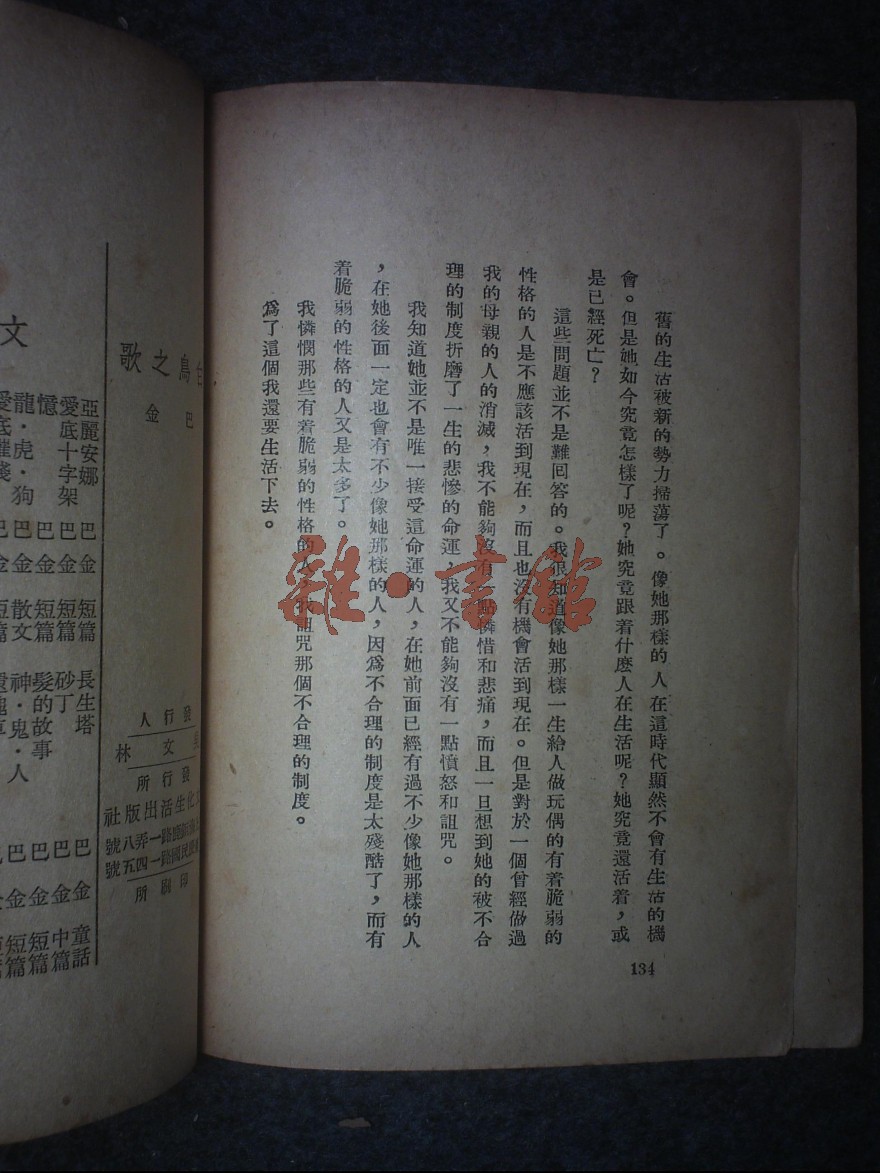 舊的生活被新的勢力掃蕩了。像她那樣的人在這時代顯然不會有生活的機
會。但是她如今究竟怎樣了呢？她究竟跟着什麼人在生活呢？她究竟還活着，或
是已經死亡？
這些問題並不是難回答的。我很知道像她那樣一生給人做玩偶的有着脆弱的
性格的人是不應該活到現在，而且也沒有機會活到現在。但是對於一個曾經做過
我的母親的人的消滅，我不能夠沒有一點憐惜和悲痛，而且一旦想到她的被不合
理的制度折磨了一生的悲慘的命運，我又不能夠沒有一點憤怒和詛咒。
我知道她並不是唯一接受這命運的人，在她前面已經有過不少像她那樣的人
，在她後面一定也會有不少像她那樣的人，因爲不合理的制度是太殘酷了，而有
着脆弱的性格的人又是太多了。
我憐憫那些有着脆弱的性格的人，我詛咒那個不合理的制度。
爲了這個我還要生活下去。
134
雜·書館
鳥之歌
巴金
發行人
文林
發行所
化生活出版社
路一弄八號
民國路一四五號
印刷所
文
亞麗安娜 巴金 短篇 長生塔 巴金 童話
愛底十字架 巴金 短篇 砂丁 巴金 中篇
憶 巴金 短篇 髮的故事 巴金 短篇
龍·虎·狗 巴金 散文 神·鬼·人 巴金 短篇